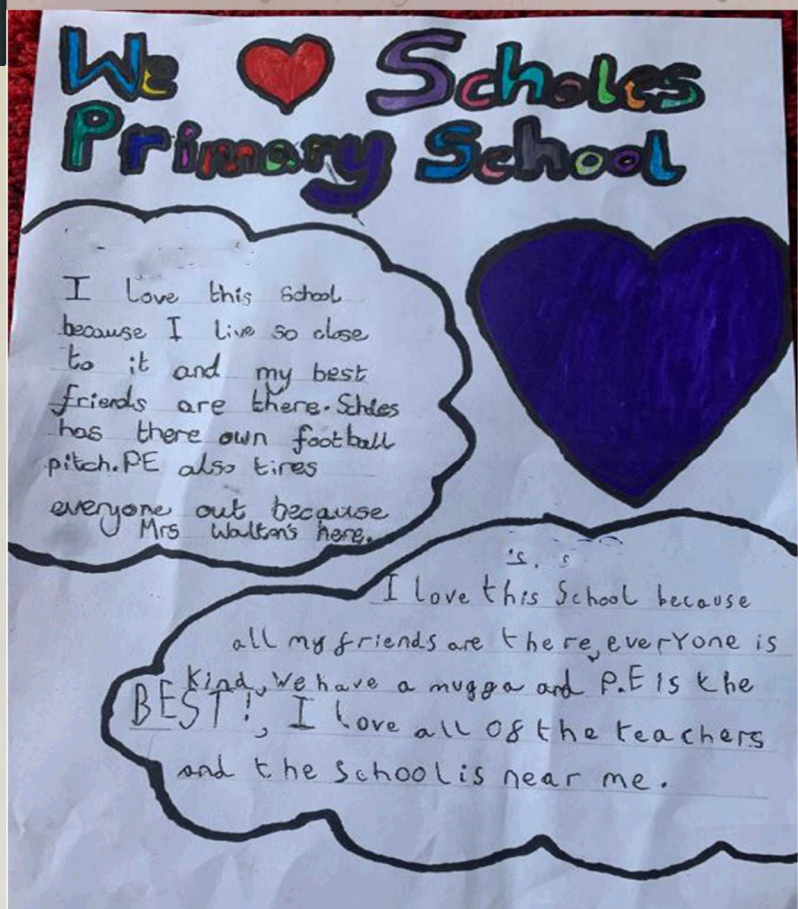 We Scholes
Primary School
I love this School
because I live so close
to it and my best
friends are there. Schles
has there own football
pitch. PE also tires
everyone out because
Mrs Walton's here.
I love this School because
all my friends are there, everyone is
kind, We have a mugga and P.E is the
BEST!, I love all of the teachers
and the school is near me.